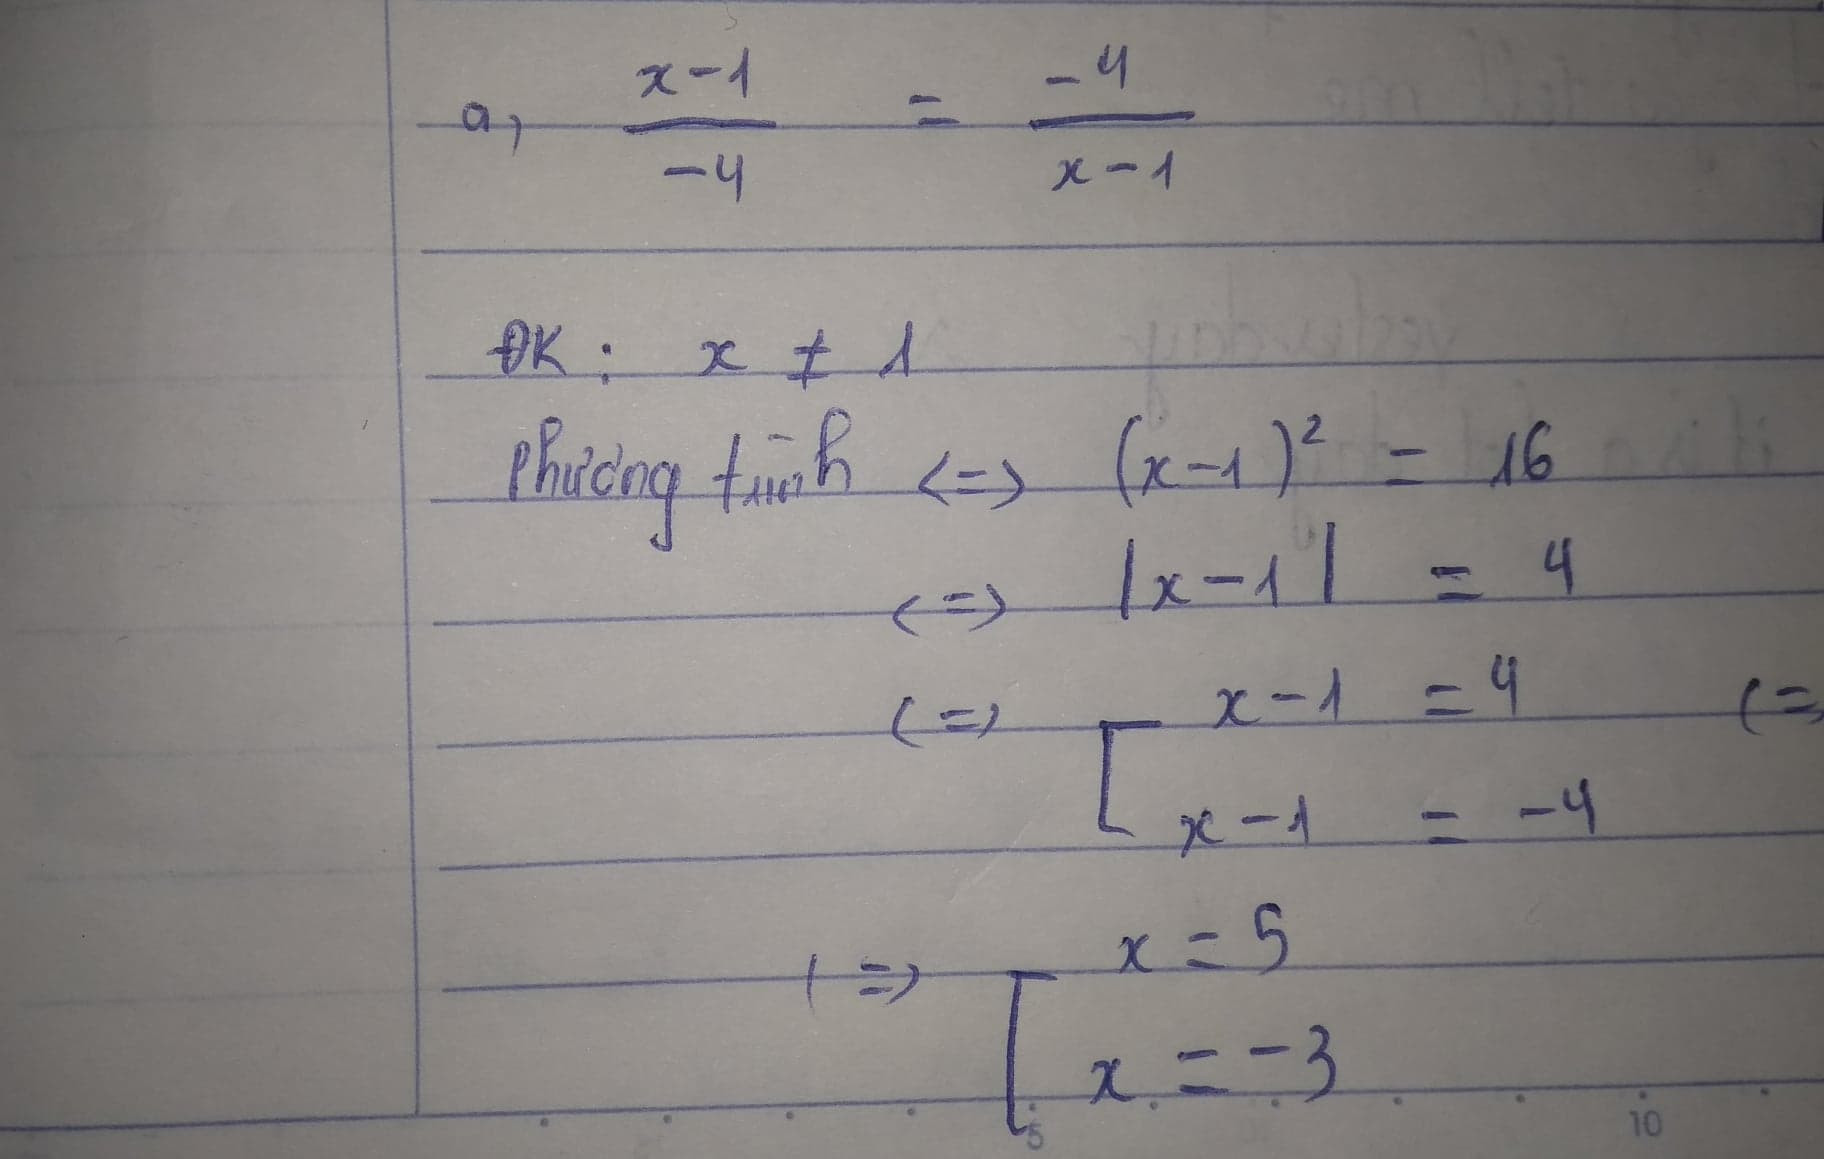 a, (x-1)/(-4) = (-4)/(x-1)
ĐK: x ≠ 1
Phương trình <=> (x-1)² = 16
<=> |x-1| = 4
<=> [ x-1 = 4 <=>
x-1 = -4
<=> [ x = 5
x = -3
5 10